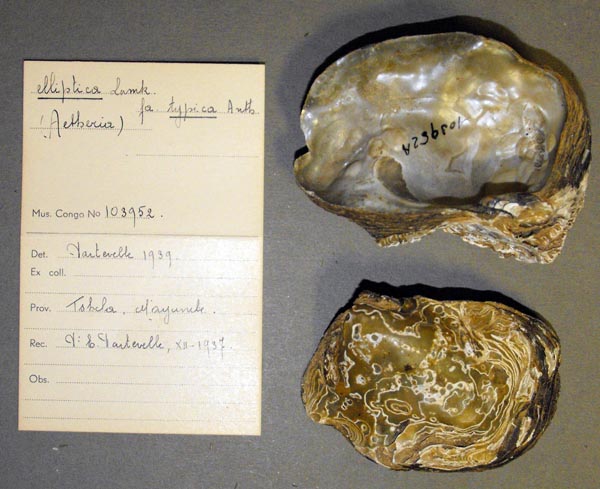 elliptica Lamk.
fa. typica Anth.
(Aetheria)
Mus. Congo No 103952.
Det. Dartevelle 1939.
Ex coll.
Prov. Tshela, Mayumbe.
Rec. Dr E. Dartevelle, XII-1937.
Obs.
103952A